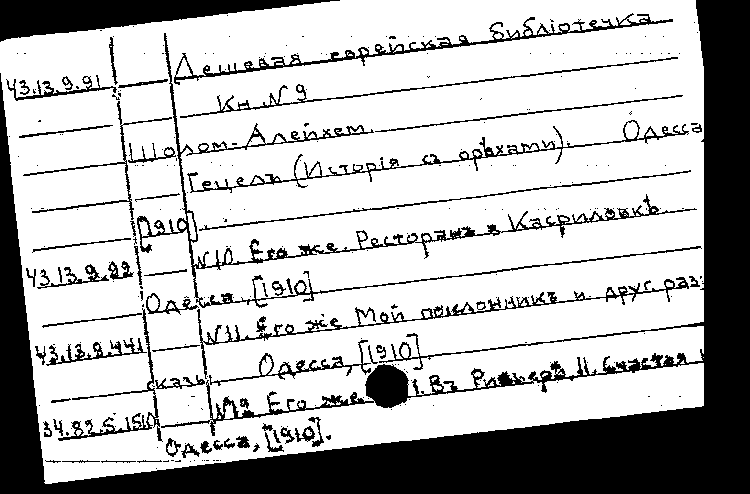 Дешевая еврейская библіотечка
43.13.9.91
Кн. N 9
Шолом-Алейхем.
Гецель (Исторія съ орѣхами). Одесса,
[1910].
43.13.9.92 N10. Его же. Ресторанъ в Касриловкѣ.
Одесса, [1910]
N11. Его же Мой поклонникъ и друг. раз-
43.13.9.441
сказы. Одесса, [1910].
N12. Его же I. Въ Ривьерѣ, II. Счастья
34.82.5.1510
Одесса, [1910].